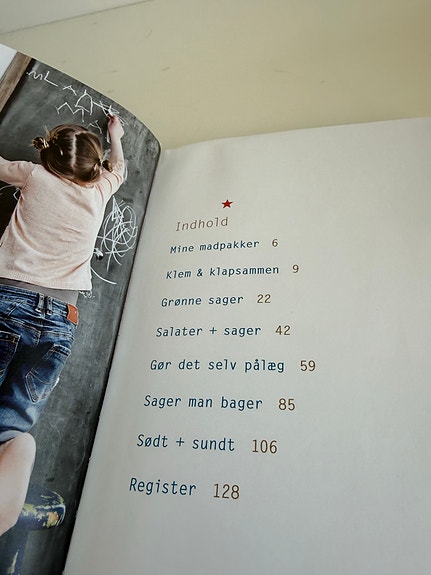 Indhold
Mine madpakker 6
Klem & klapsammen 9
Grønne sager 22
Salater + sager 42
Gør det selv pålæg 59
Sager man bager 85
Sødt + sundt 106
Register 128